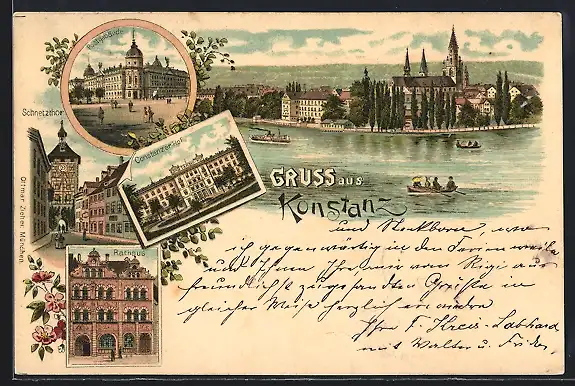 Postgebäude
Schnetzthor
Constanzer Hof
GRUSS aus
Konstanz
Rathaus
Ottmar Zieher, München
und Steckborn, wo
ich gegenwärtig in den Ferien weile
und Ihnen Ihre mir vom Rigi aus
freundlichst zugesandten Grüße in
gleicher Weise herzlich erwidere
Ihr F. Kreis-Labhard
mit Walter u. Frida